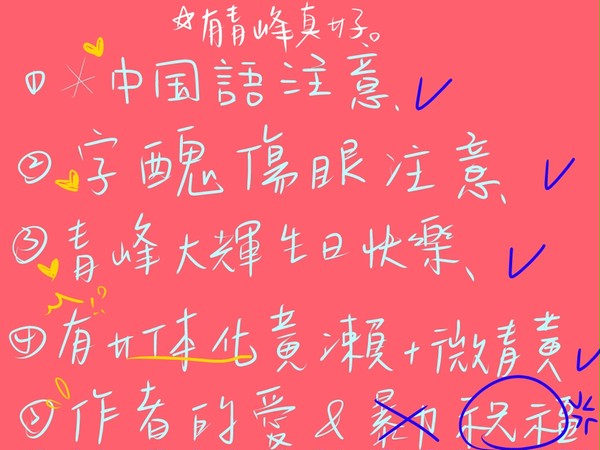 ☆有青峰真好。
① *中国語注意、
② 字醜傷眼注意、
③ 青峰大輝生日快樂、
④ 有女体化黃瀨+微青黃
⑤ 作者的愛&暴力祝福